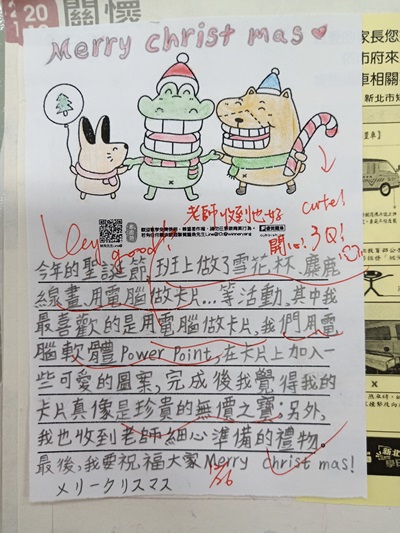 關懷
Merry christ mas
老師收到也好
開心! 3Q!
cute!
Very good!
今年的聖誕節,班上做了雪花杯、麋鹿
線畫、用電腦做卡片...等活動,其中我
最喜歡的是用電腦做卡片,我們用電
腦軟體Power Point,在卡片上加入一
些可愛的圖案,完成後我覺得我的
卡片真像是珍貴的無價之寶;另外,
我也收到老師細心準備的禮物。
最後,我要祝福大家Merry christ mas!
メリークリスマス
12/26
家長您
市府來
車相關
新北市